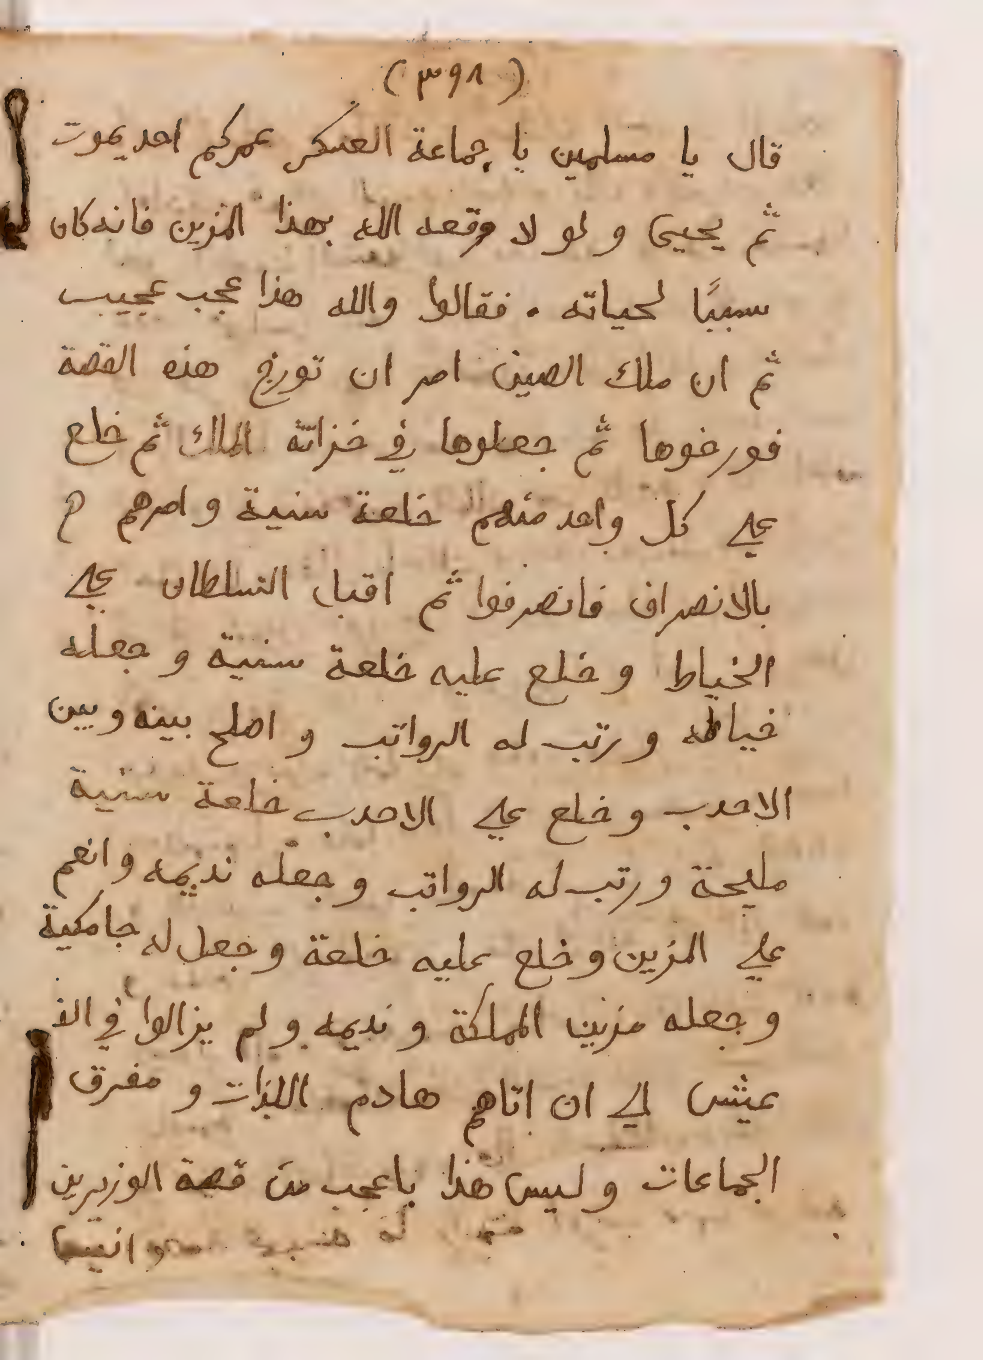 (٣٩٨)
قال يا مسلمين يا جماعة العسكر عمركم احد يموت
ثم يحيى و لو لا وقعه الله بهذا المزين فانه كان
سببًا لحياته . فقالوا والله هذا عجب عجيب
ثم ان ملك الصين امر ان تورخ هذه القصة
فورخوها ثم جعلوها في خزانة الملك ثم خلع
علي كل واحد منهم خلعة سنية و امرهم
بالانصراف فانصرفوا ثم اقبل السلطان علي
الخياط و خلع عليه خلعة سنية و جعله
خياطه و رتب له الرواتب و اصلح بينه و بين
الاحدب و خلع علي الاحدب خلعة سنية
مليحة و رتب له الرواتب و جعله نديمه و انعم
علي المزين و خلع عليه خلعة و جعل له جامكية
و جعله مزين المملكة و نديمه و لم يزالوا في الذ
عيش الي ان اتاهم هادم اللذات و مفرق
الجماعات و ليس هذا باعجب من قصة الوزيرين